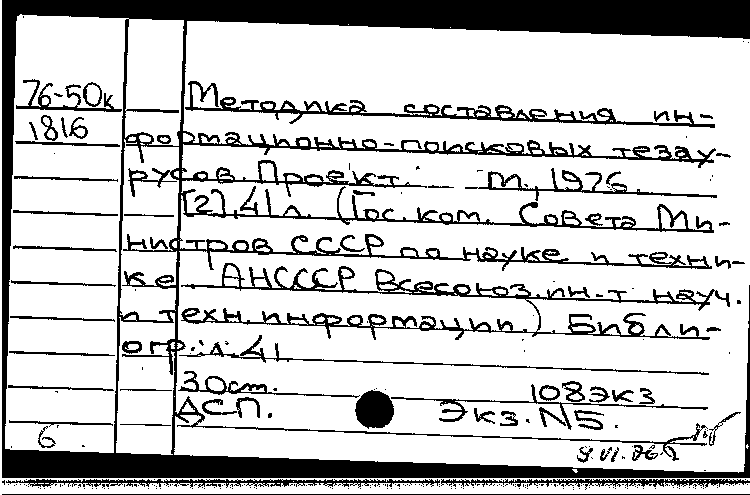 76-50к Методика составления ин-
1816 формационно-поисковых тезау-
русов. Проект. М., 1976.
[2], 41 л. (Гос. ком. Совета Ми-
нистров СССР по науке и техни-
ке. АНСССР Всесоюз. ин-т науч.
и техн. информации.). Библи-
огр.: л. 41.
30 ст. 108 экз.
ДСП. Экз. N5.
6.
9.VI.76